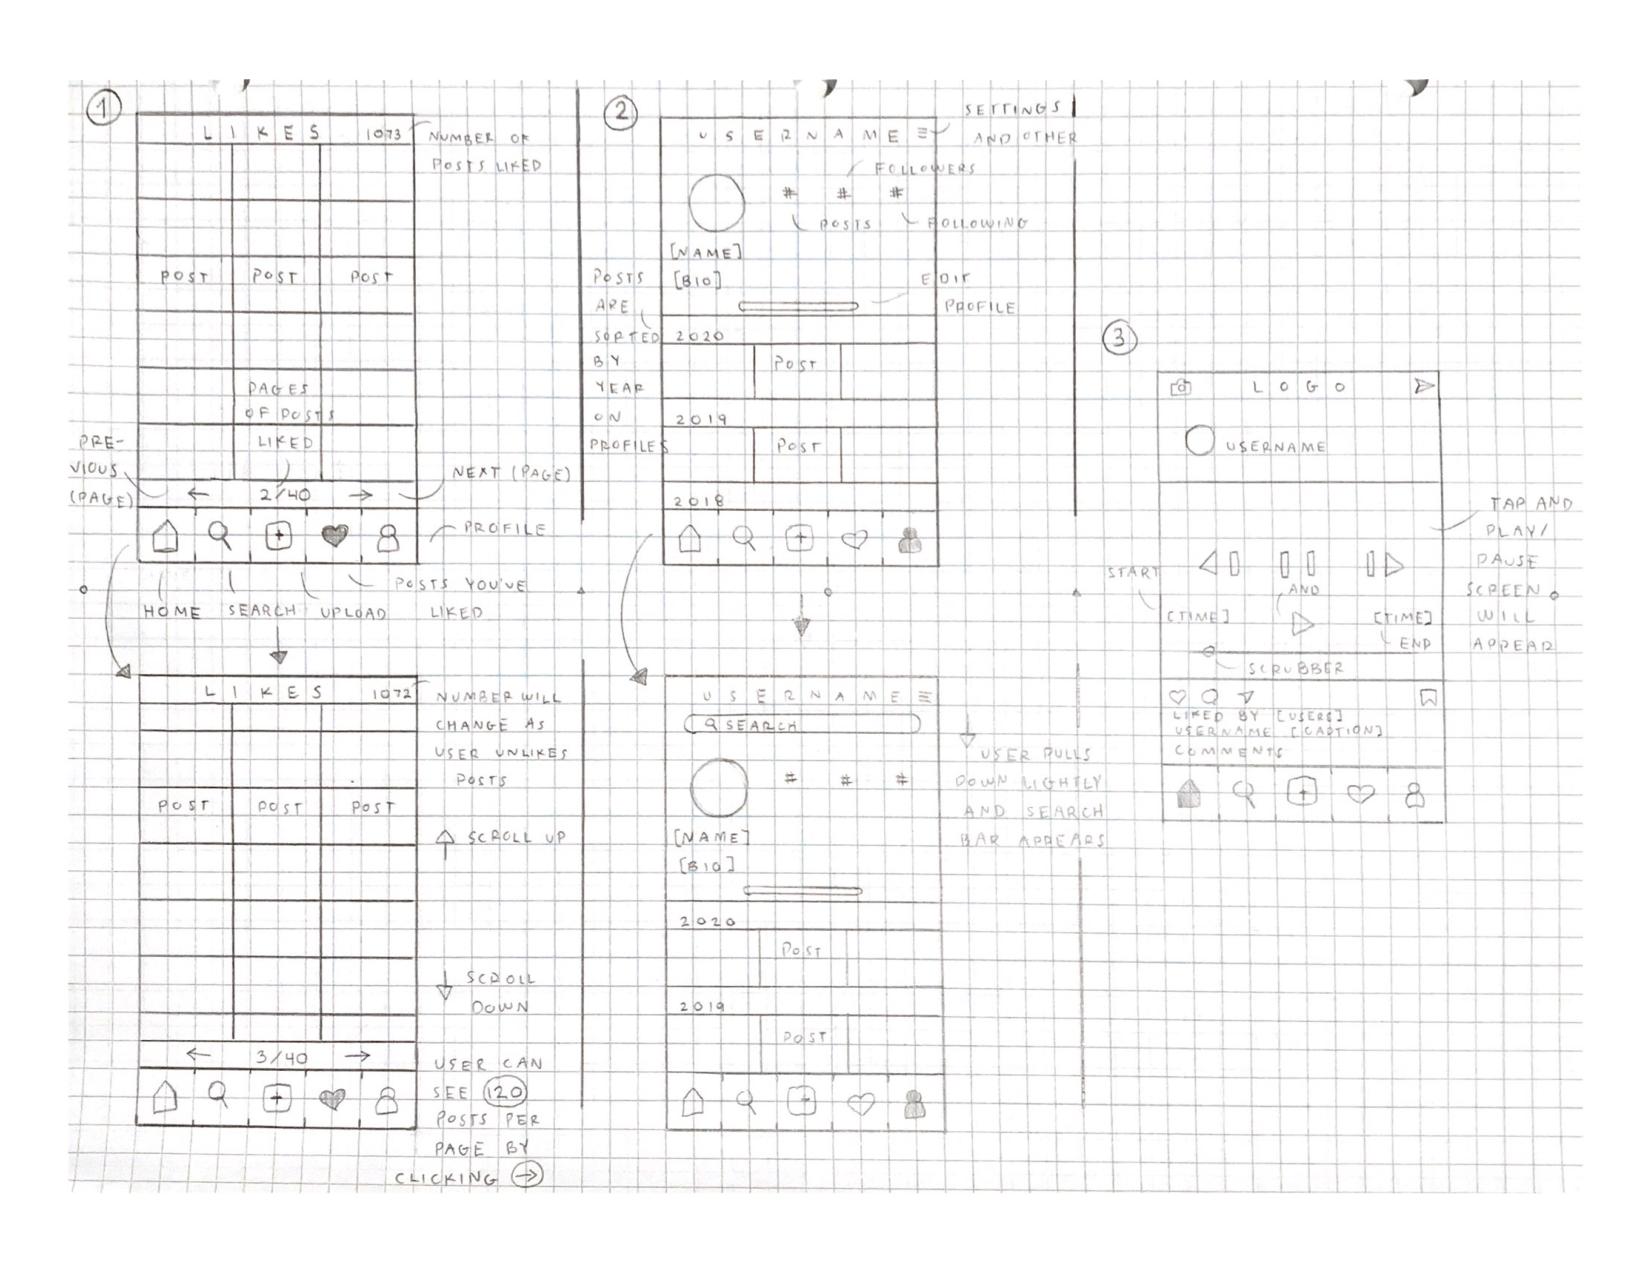 1
LIKES 1073
NUMBER OF
POSTS LIKED
POST POST POST
PAGES
OF POSTS
LIKED
PRE-
VIOUS
(PAGE)
NEXT (PAGE)
← 2/40 →
PROFILE
POSTS YOU'VE
LIKED
HOME SEARCH UPLOAD
LIKES 1072
NUMBER WILL
CHANGE AS
USER UNLIKES
POSTS
POST POST POST
SCROLL UP
SCROLL
DOWN
← 3/40 →
USER CAN
SEE 120
POSTS PER
PAGE BY
CLICKING →
2
SETTINGS
AND OTHER
USERNAME
FOLLOWERS
# # #
POSTS FOLLOWING
[NAME]
[BIO]
EDIT
PROFILE
POSTS
ARE
SORTED
BY
YEAR
ON
PROFILES
2020
POST
2019
POST
2018
USERNAME
SEARCH
USER PULLS
DOWN LIGHTLY
AND SEARCH
BAR APPEARS
# # #
[NAME]
[BIO]
2020
POST
2019
POST
3
LOGO
USERNAME
TAP AND
PLAY/
PAUSE
SCREEN
WILL
APPEAR
START
AND
[TIME] [TIME]
END
SCRUBBER
LIKED BY [USERS]
USERNAME [CAPTION]
COMMENTS